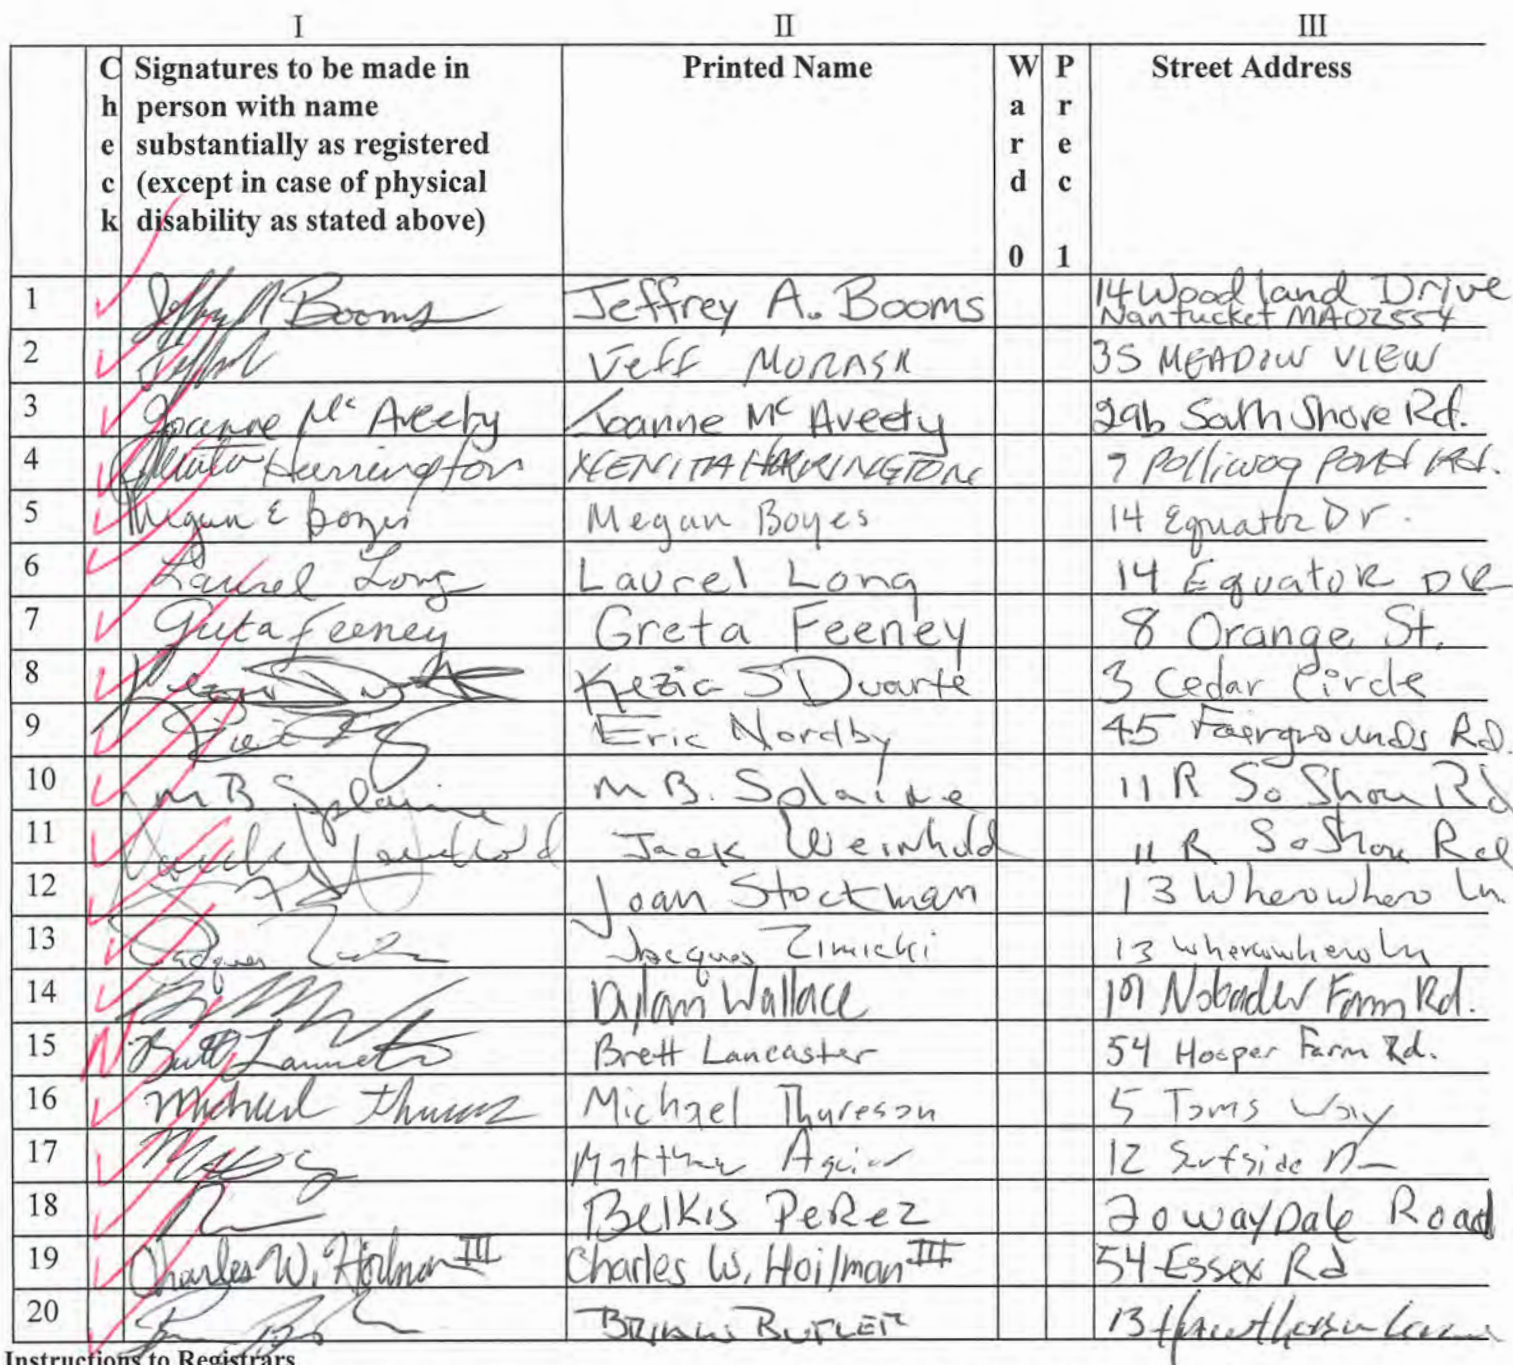 I II III
Check Signatures to be made in person with name substantially as registered (except in case of physical disability as stated above) Printed Name Ward 0 Prec 1 Street Address
1 Jeffrey A Booms Jeffrey A. Booms 14 Woodland Drive
Nantucket MA 02554
2 Jeff MORASH 35 MEADOW VIEW
3 Joanne Mc Aveety Joanne Mc Aveety 29b South Shore Rd.
4 Harrington XENITA HARRINGTON 9 Polliwog Pond Rd.
5 Megan E Boyes Megan Boyes 14 Equator Dr.
6 Laurel Long Laurel Long 14 Equator DR
7 Greta Feeney Greta Feeney 8 Orange St.
8 Kezia S Duarte 3 Cedar Circle
9 Eric Nordby 45 Fairgrounds Rd.
10 M B Splaine M B. Splaine 11 R So Shore Rd
11 Jack Weinhold Jack Weinhold 11 R So Shore Rd
12 Joan Stockman 13 Wherowhero Ln.
13 Jacques Zimicki Jacques Zimicki 13 wherowhero Ln
14 Dylan Wallace 101 Nobadeer Farm Rd.
15 N Brett Lancaster Brett Lancaster 54 Hooper Farm Rd.
16 Michael Thureson Michael Thureson 5 Toms Way
17 Matthew 12 Surfside
18 Belkis Perez 20 waydale Road
19 Charles W. Hoilman III Charles W. Hoilman III 54 Essex Rd
20 BUTLER 13 Hawthorne Lane
Instructions to Registrars